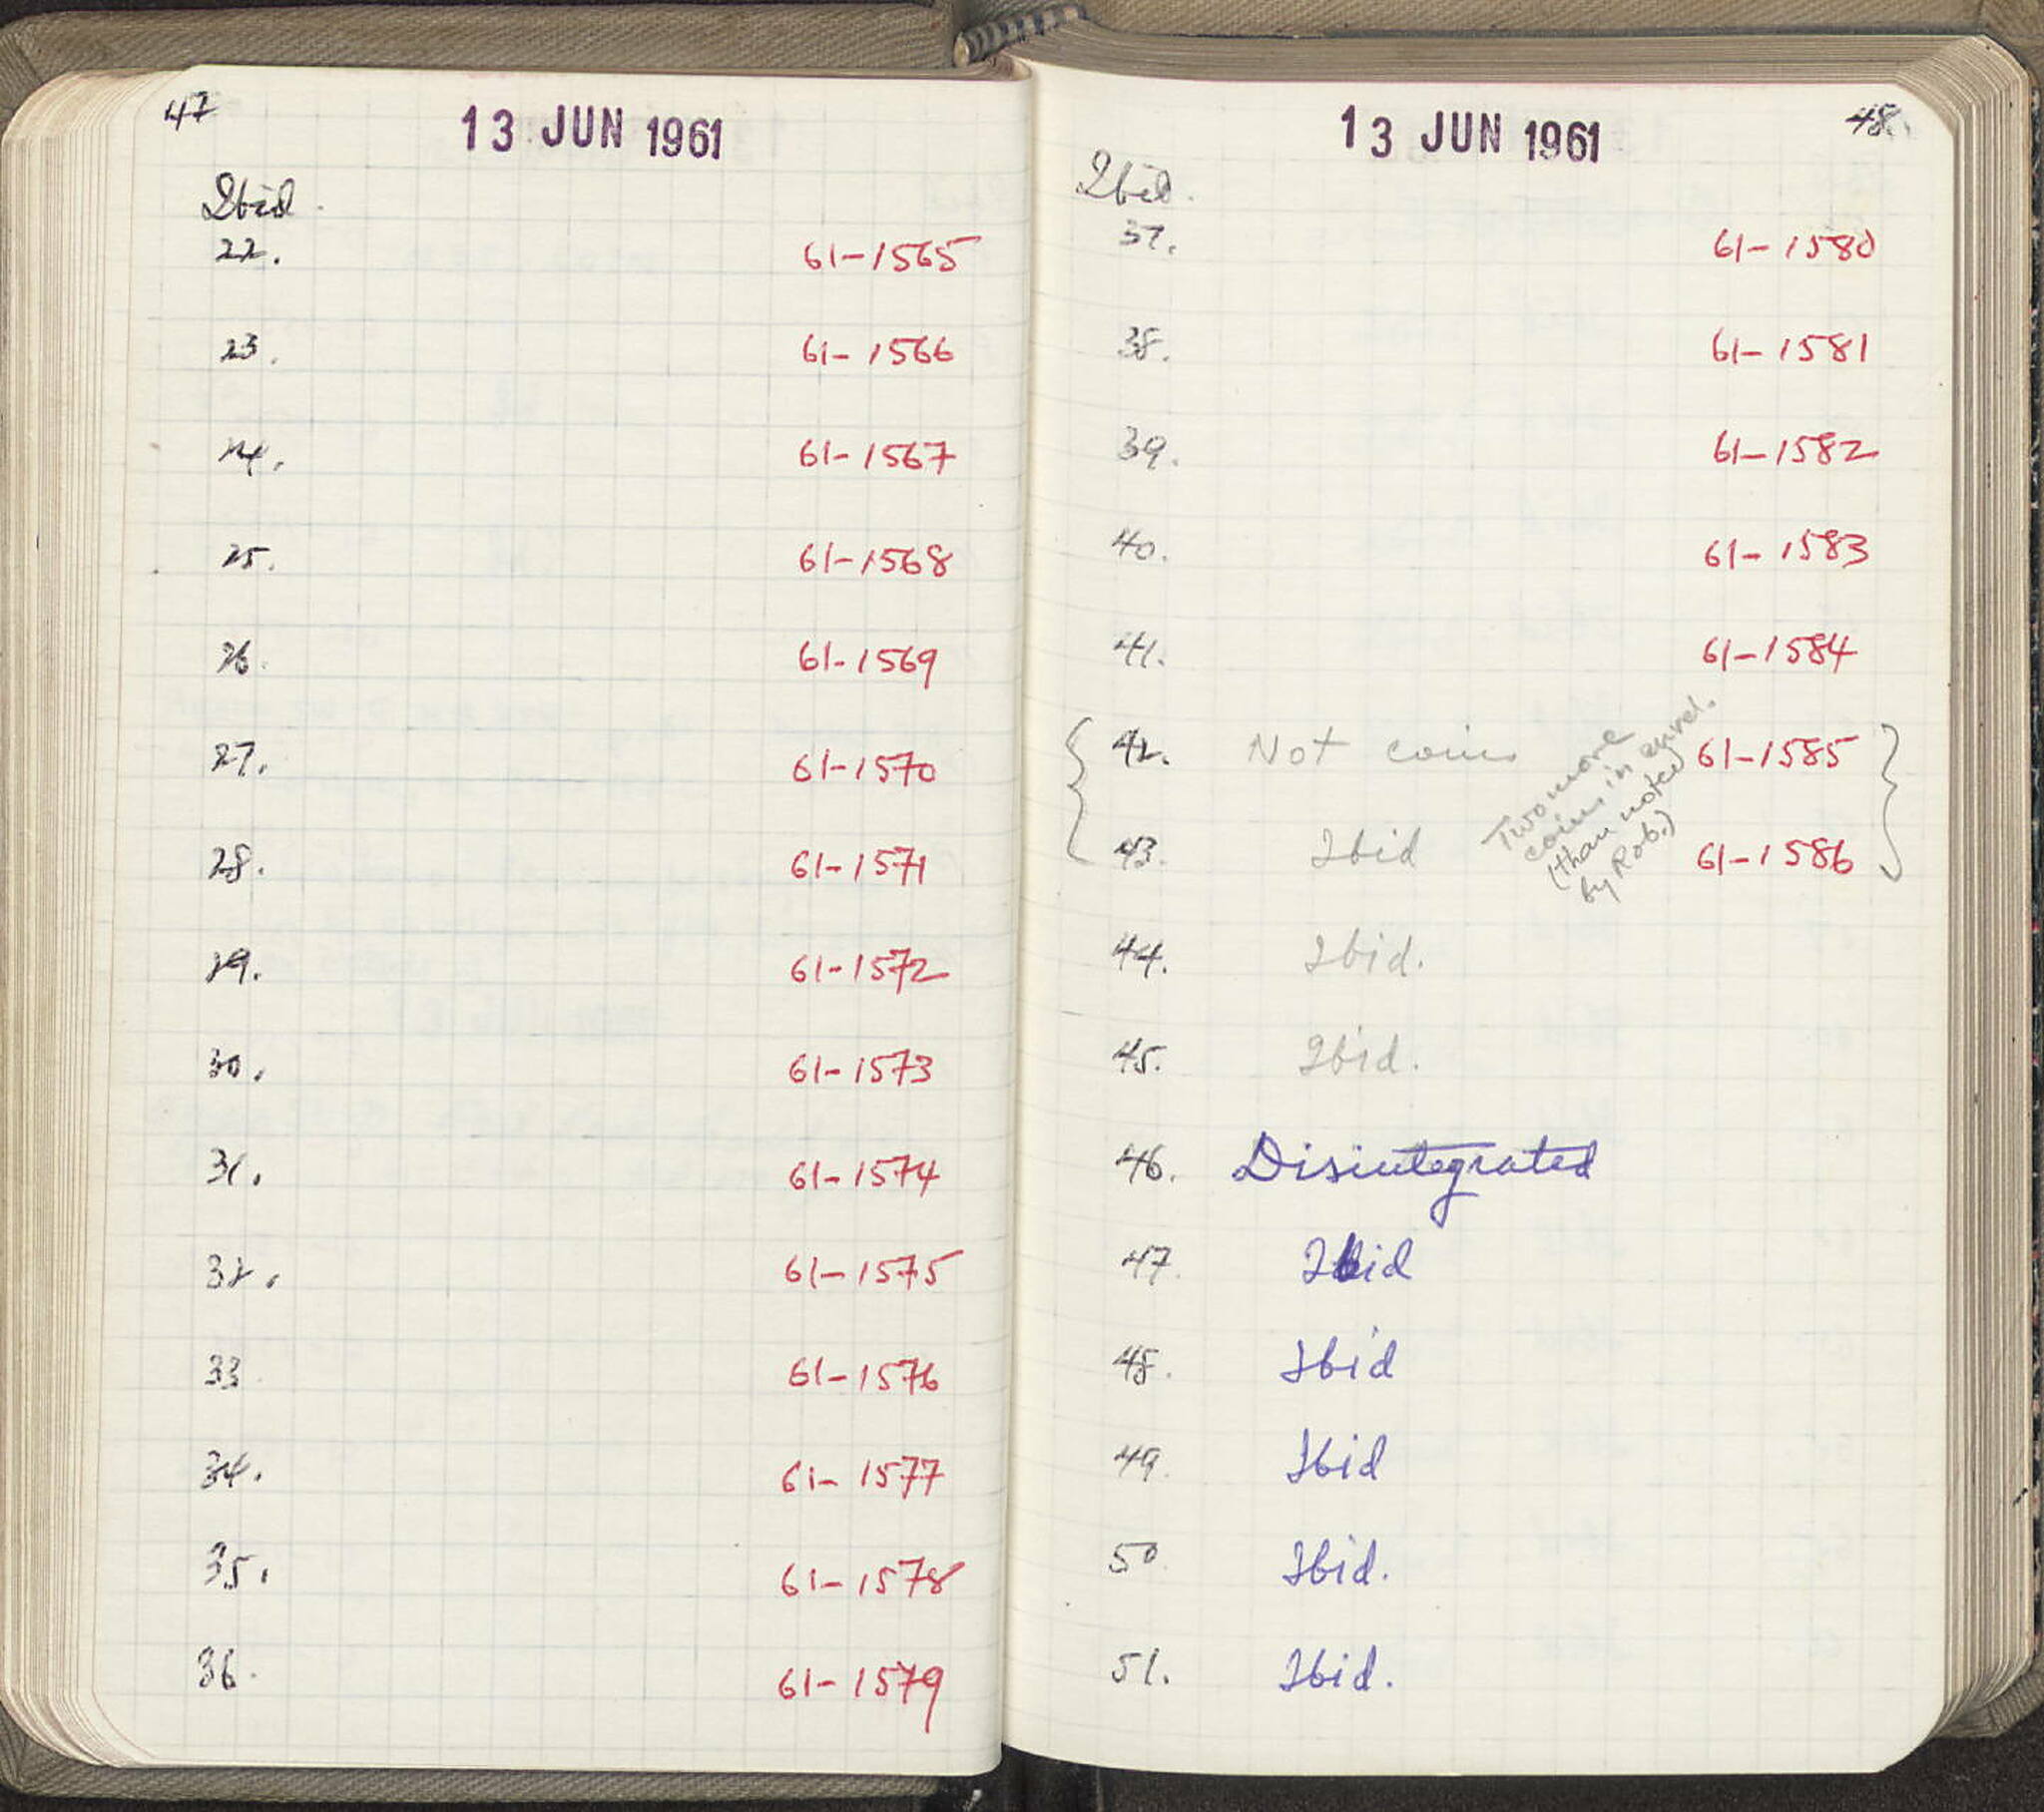 47
13 JUN 1961
Ibid.
22. 61-1565
23. 61-1566
24. 61-1567
25. 61-1568
26. 61-1569
27. 61-1570
28. 61-1571
29. 61-1572
30. 61-1573
31. 61-1574
32. 61-1575
33 61-1576
34. 61-1577
35. 61-1578
36. 61-1579
48.
13 JUN 1961
Ibid.
37. 61-1580
38. 61-1581
39. 61-1582
40. 61-1583
41. 61-1584
42. Not coins 61-1585
43. Ibid 61-1586
Two more
coins in envel.
(than noted
by Rob.)
44. Ibid.
45. Ibid.
46. Disintegrated
47. Ibid
48. Ibid
49. Ibid
50. Ibid.
51. Ibid.